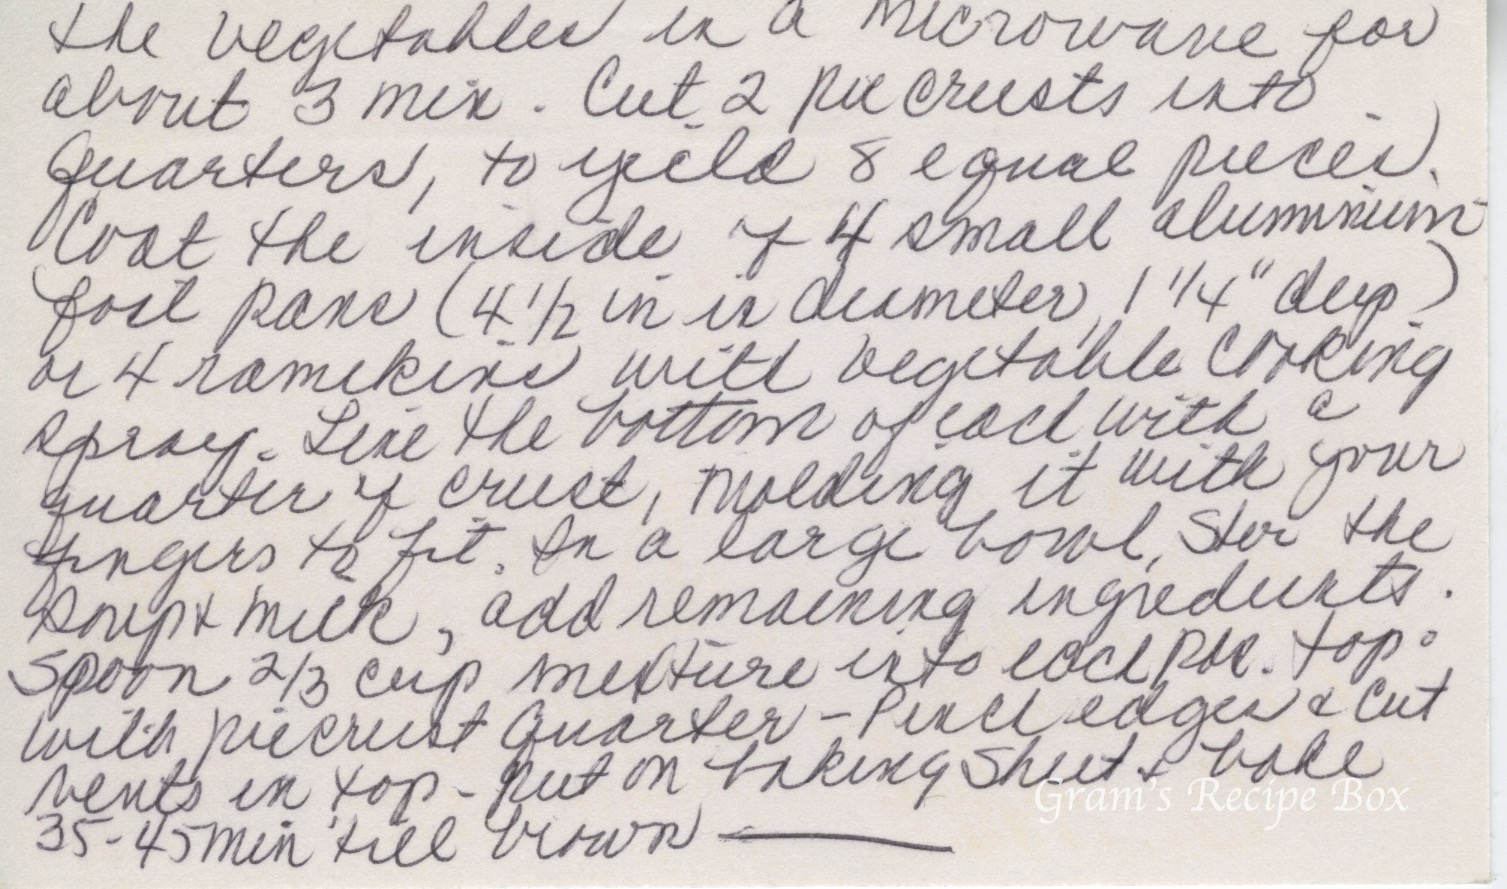 the vegetables in a microwave for
about 3 min. Cut 2 pie crusts into
Quarters, to yield 8 equal pieces.
Coat the inside of 4 small aluminium
foil pans (4 1/2 in in diameter, 1 1/4" deep)
or 4 ramekins with vegetable cooking
spray. Line the bottom of each with a
quarter of crust, molding it with your
fingers to fit. In a large bowl, stir the
soup & milk, add remaining ingredients.
Spoon 2/3 cup mixture into each pie. top
with piecrust Quarter - Pinch edges & Cut
vents in top - put on baking sheet & bake
35-45 min till brown
Gram's Recipe Box